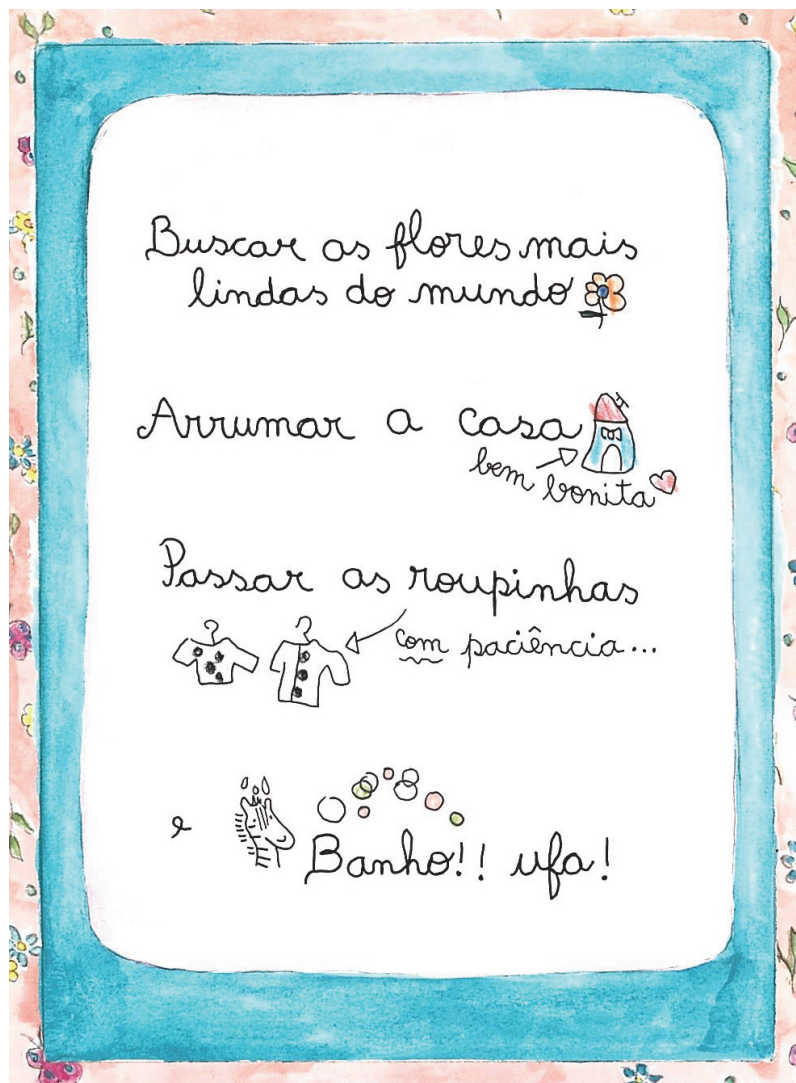 Buscar as flores mais
lindas do mundo
Arrumar a casa
bem bonita
Passar as roupinhas
com paciência...
e Banho!! ufa!